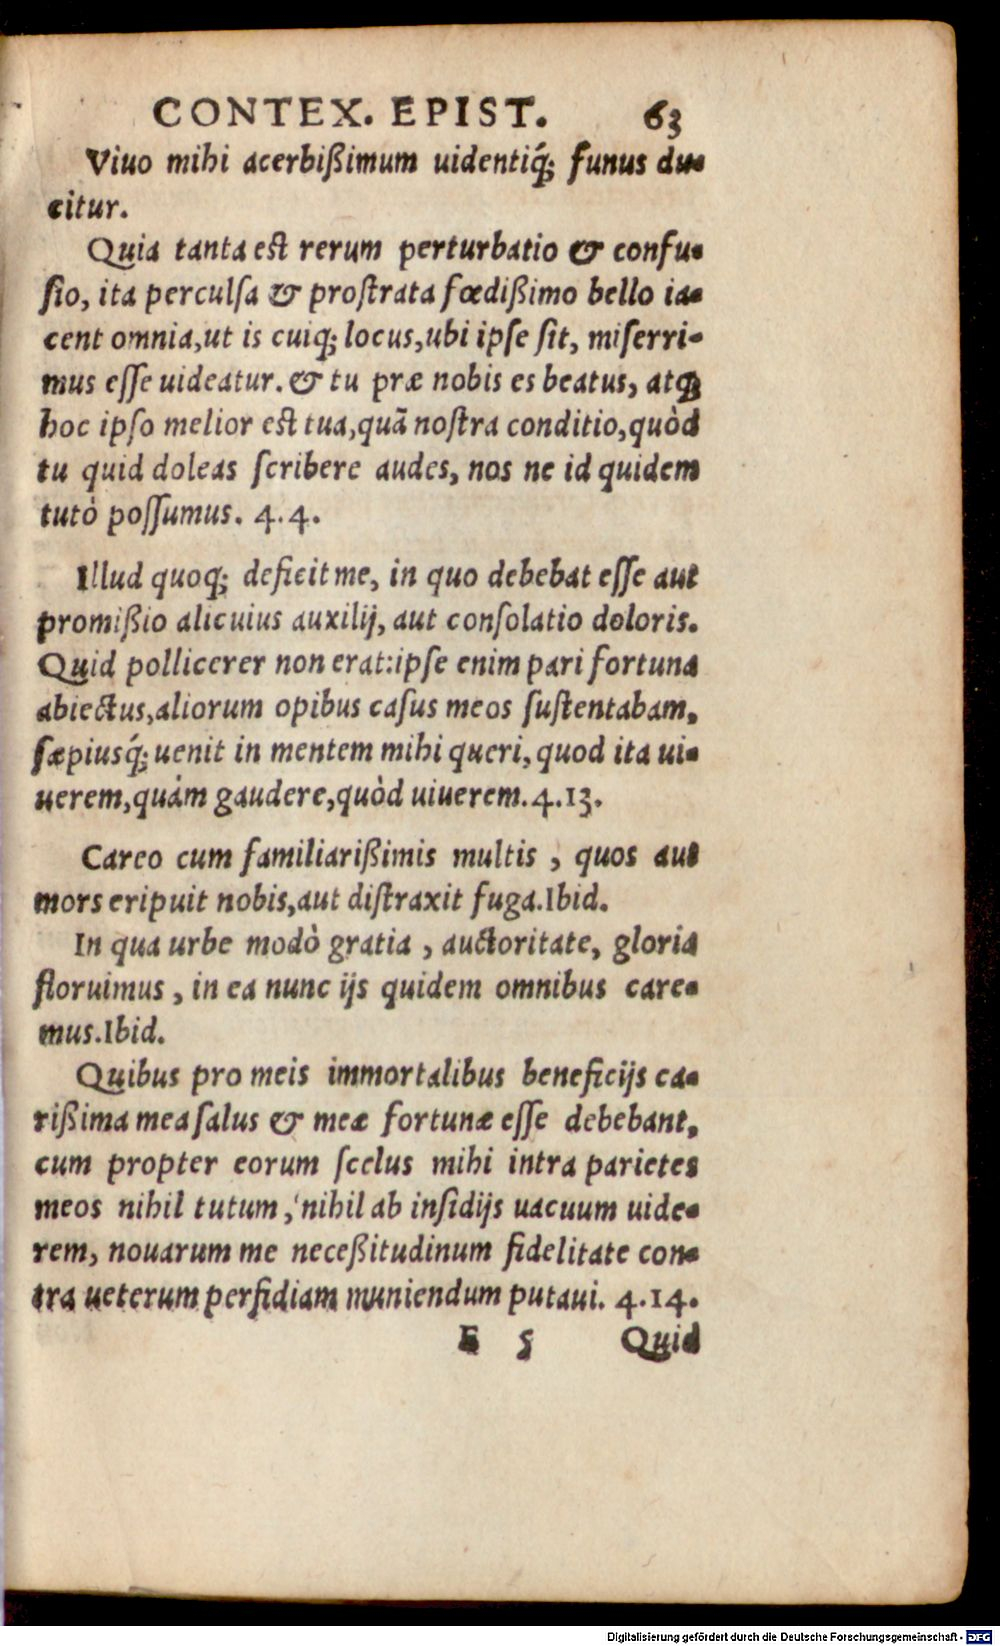 CONTEX. EPIST. 63
Viuo mihi acerbißimum uidentiq́; funus du-
citur.
Quia tanta est rerum perturbatio & confu-
sio, ita perculſa & proſtrata fœdißimo bello ia-
cent omnia,ut is cuiq; locus,ubi ipſe ſit, miſerri-
mus eſſe uideatur. & tu præ nobis es beatus, atq;
hoc ipſo melior est tua,quã noſtra conditio,quòd
tu quid doleas ſcribere audes, nos ne id quidem
tutò poſſumus. 4.4.
Illud quoq; deficit me, in quo debebat eſſe aut
promißio alicuius auxilij, aut conſolatio doloris.
Quid pollicerer non erat:ipſe enim pari fortuna
abiectus,aliorum opibus caſus meos ſuſtentabam,
ſæpiusq́; uenit in mentem mihi queri, quod ita ui-
uerem,quám gaudere,quòd uiuerem.4.13.
Careo cum familiarißimis multis , quos aut
mors eripuit nobis,aut diſtraxit fuga.Ibid.
In qua urbe modò gratia , auctoritate, gloria
floruimus , in ea nunc ijs quidem omnibus care-
mus.Ibid.
Quibus pro meis immortalibus beneficijs ca-
rißima mea ſalus & meæ fortunæ eſſe debebant,
cum propter eorum ſcelus mihi intra parietes
meos nihil tutum , nihil ab inſidijs uacuum uide-
rem, nouarum me neceßitudinum fidelitate con-
tra ueterum perfidiam muniendum putaui. 4.14.
E 5 Quid
Digitalisierung gefördert durch die Deutsche Forschungsgemeinschaft - DFG